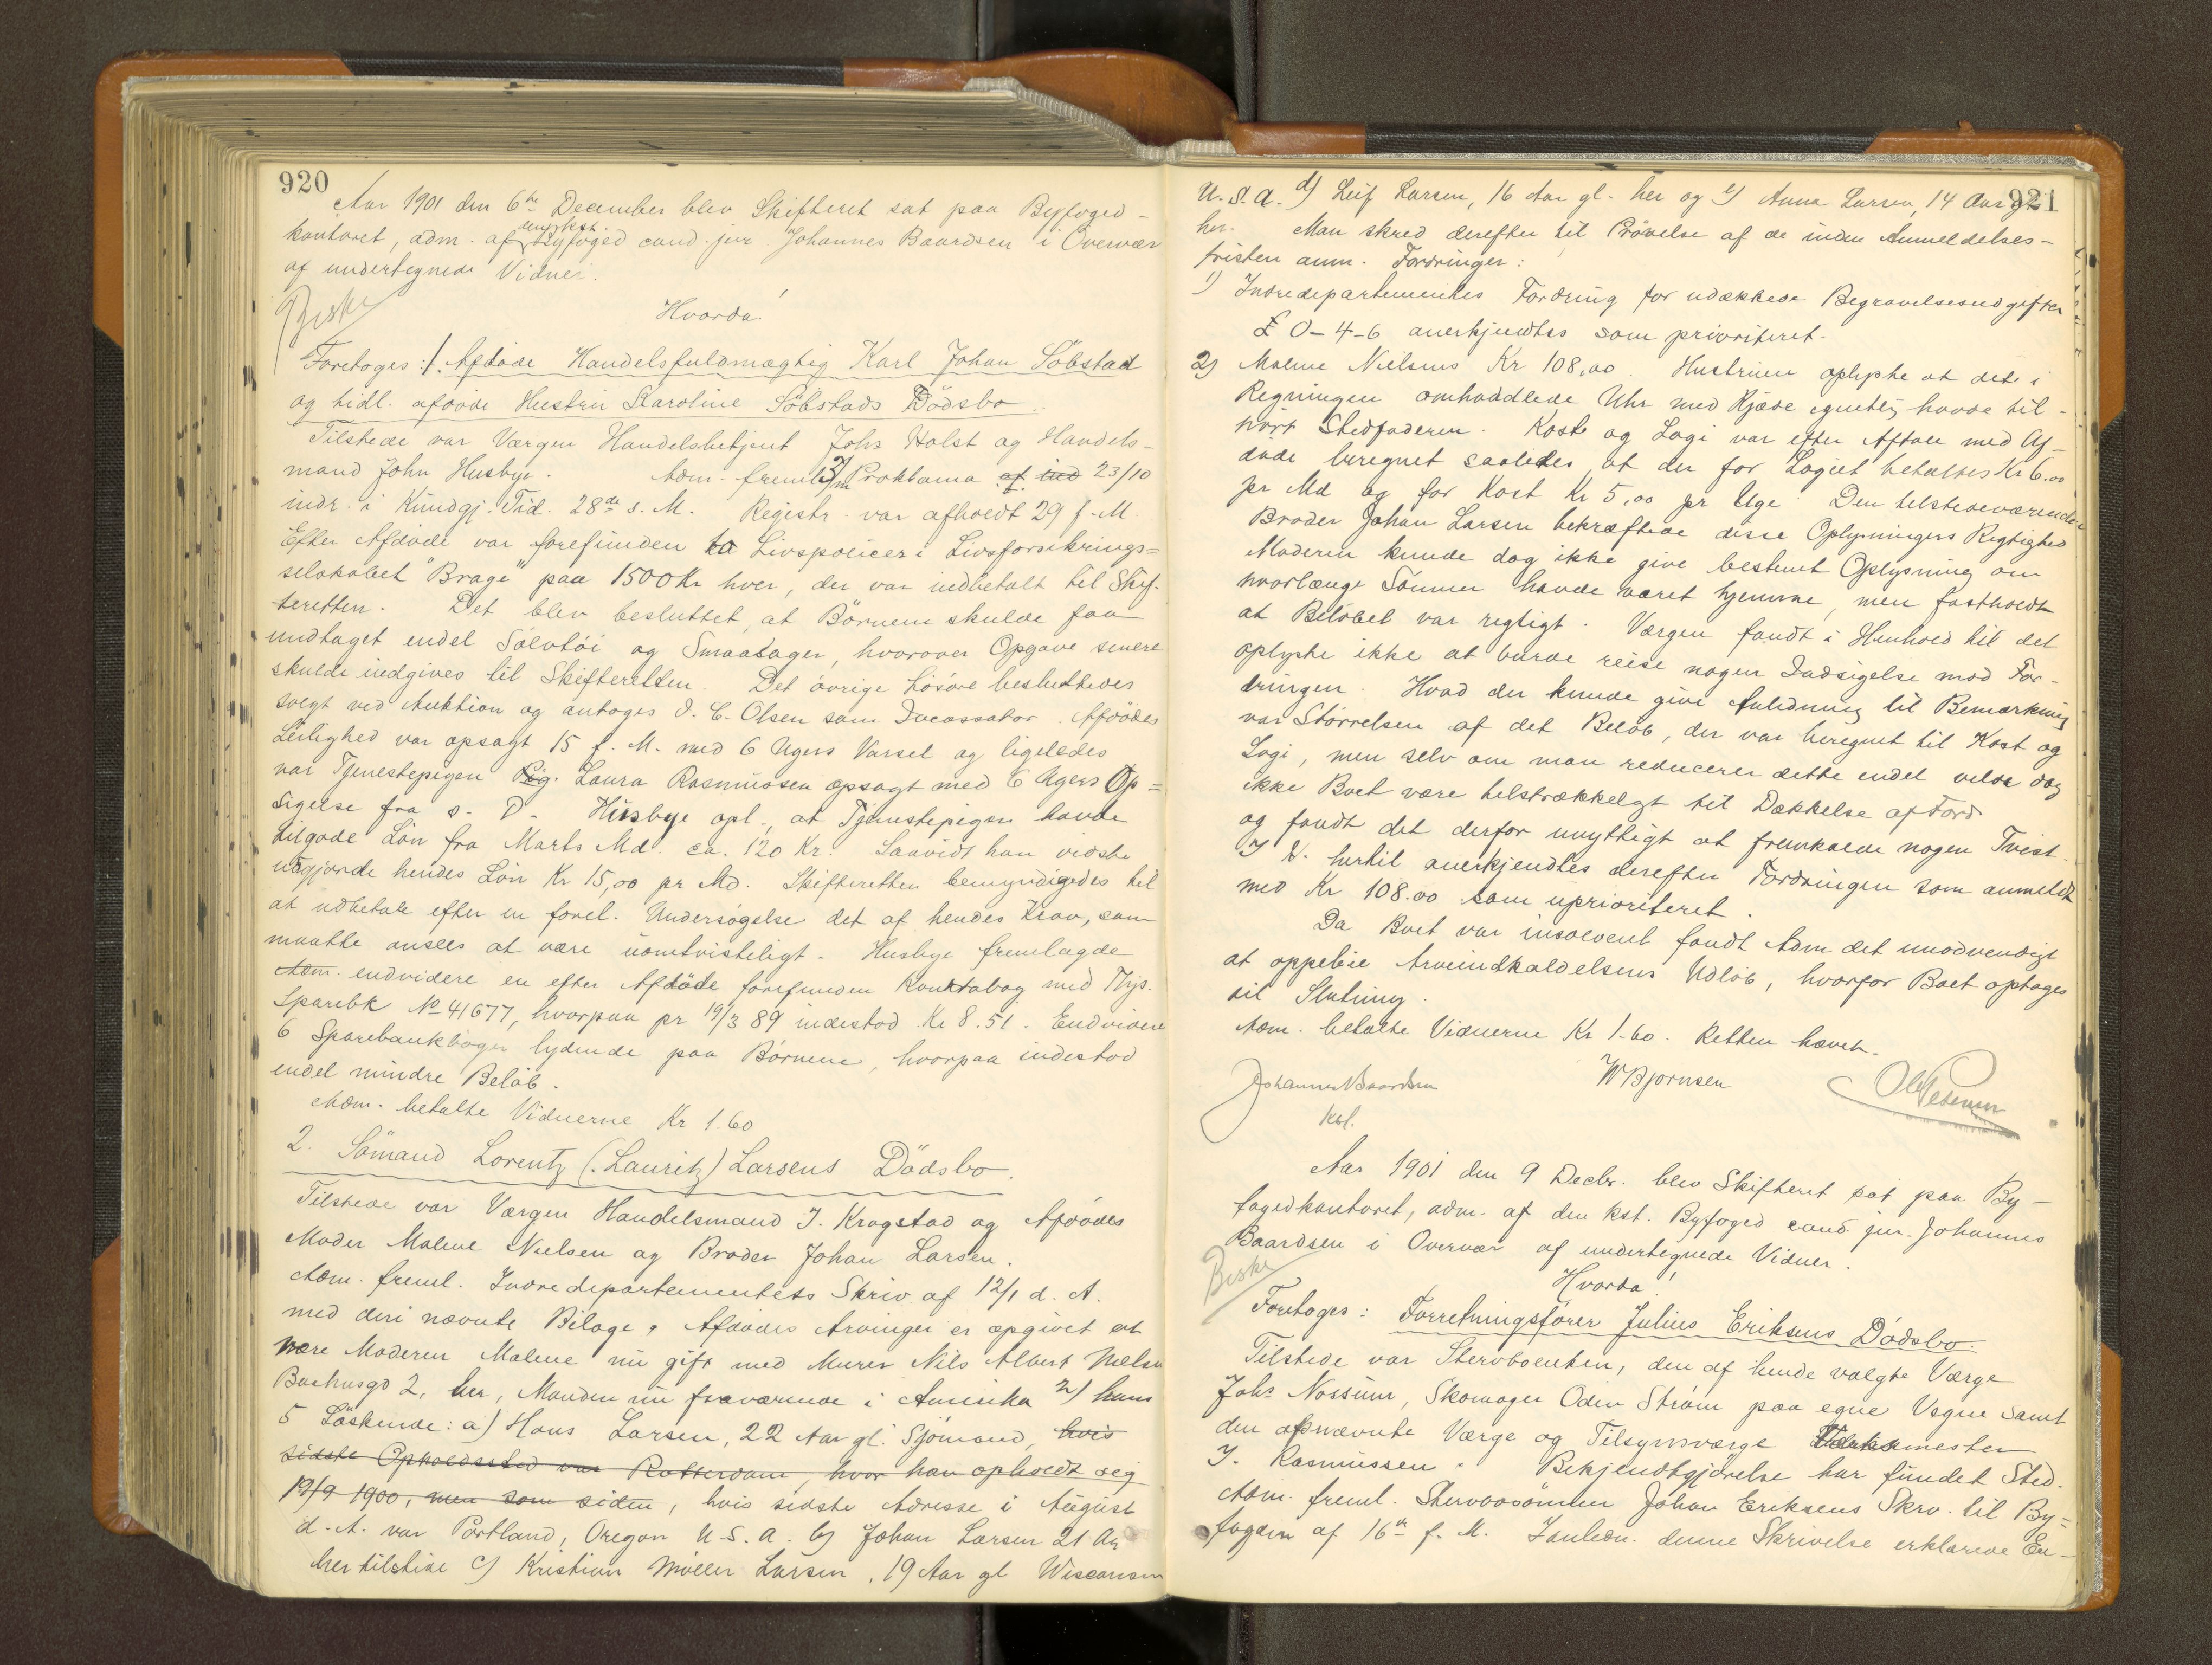 920
Aar 1901 den 6te December blev Skifteret sat paa Byfoged-
kontoret, adm. af den kst. Byfoged cand. jur. Johannes Baardsen i Overvær
af undertegnede Vidner.
Beskr
Hvorda!
Foretoges: 1. Afdøde Handelsfuldmægtig Karl Johan Söbstad
og tidl. afdøde Hustru Karoline Söbstads Dödsbo.
Tilstede var Værgen Handelsbetjent Johs Holst og Handels-
mand John Husbye. Adm. freml. Proklama af ind 23/10
indr. i Kundgj. Tid. 28de s. M. Registr. var afholdt 29 f. M.
Efter Afdøde var forefunden to Livspolicer i Livsforsikrings=
selskabet "Brage" paa 1500 Kr hver, der var indbetalt til Skif-
teretten. Det blev besluttet, at Börnene skulde faa
undtaget endel Sölvtöi og Smaasager, hvorover Opgave senere
skulde indgives til Skifteretten. Det övrige Lösöre besluttedes
solgt ved Auktion og antoges O. C. Olsen som Incassator. Afdödes
Leilighed var opsagt 15 f. M. med 6 Ugers Varsel og ligeledes
var Tjenestepigen Pig. Laura Rasmussen opsagt med 6 Ugers Op=
sigelse fra s. D. Husbye opl., at Tjenestepigen havde
tilgode Lön fra Marts Md. ca. 120 Kr. Saavidt han vidste
udgjorde hendes Lön Kr 15,00 pr Md. Skifteretten bemyndigedes til
at udbetale efter en forel. Undersögelse det af hendes Krav, som
maatte ansees at være uomtvisteligt. Husbye fremlagde
Adm. endvidere en efter Afdöde forefunden Kontrabog med Thjs.
Sparebk No 41677, hvorpaa pr 19/3 89 indestod Kr 8.51. Endvidere
6 Sparebankböger lydende paa Börnene, hvorpaa indestod
endel mindre Belöb.
Adm. betalte Vidnerne Kr 1.60
2. Sömand Lorentz (Lauritz) Larsens Dödsbo.
Tilstede var Værgen Handelsmand J. Krogstad og Afdödes
Moder Malene Nielsen og Broder Johan Larsen.
Adm. freml. Indredepartementets Skriv. af 12/1 d. A.
med deri nævnte Bilage. Afdödes Arvinger er opgivet at
være Moderen Malene nu gift med Murer Nils Albert Nielsen
Bachusgd 2, her, Manden nu fraværende i Amerika 2) hans
5 Söskende: a) Hans Larsen, 22 Aar gl. Sjömand, hvis
sidste Opholdssted var Rotterdam, hvor han opholdt sig
19/9 1900, men som siden, hvis sidste Adresse i August
d. A. var Portland, Oregon U. S. A. b) Johan Larsen 21 Aar
her tilstede c) Kristian Möller Larsen, 19 Aar gl Wisconsin
921
U. S. A. d) Leif Larsen, 16 Aar gl. her og e) Anna Larsen, 14 Aar gl
her. Man skred derefter til Prövelse af de inden Anmeldelses-
fristen anm. Fordringer:
1) Indredepartementets Fordring for udækkede Begravelsesudgifter
£ 0-4-6 anerkjendtes som prioriteret.
2) Malene Nielsens Kr 108,00. Hustruen oplyste at det i
Regningen omhandlede Uhr med Kjæde egentlig havde til-
hört Stedfaderen. Kost og Logi var efter Aftale med Af-
döde beregnet saaledes, at der for Logiet betaltes Kr 6.00
pr Md og for Kost Kr 5,00 pr Uge. Den tilstedeværende
Broder Johan Larsen bekræftede disse Oplysningers Rigtighed
Moderen kunde dog ikke give bestemt Oplysning om
hvorlænge Sönnen havde været hjemme, men fastholdt
at Belöbet var rigtigt. Værgen fandt i Henhold til det
oplyste ikke at burde reise nogen Indsigelse mod For-
dringen. Hvad der kunde give Anledning til Bemærkning
var Störrelsen af det Belöb, der var beregnet til Kost og
Logi, men selv om man reducerer dette endel vilde dog
ikke Boet være tilstrækkeligt til Dækkelse af Ford
og fandt det derfor unyttigt at fremkalde nogen Tvist.
I H. hertil anerkjendtes derefter Fordringen som anmeldt
med Kr 108.00 som uprioriteret.
Da Boet var insolvent fandt Adm det unödvendigt
at oppebie Arveindkaldelsens Udlöb, hvorfor Boet optages
til Slutning.
Adm. betalte Vidnerne Kr 1.60. Retten hævet.
Johannes Baardsen
kst.
W Bjørnsen
Ole Petersen
Aar 1901 den 9 Decbr. blev Skifteret sat paa By-
fogedkontoret, adm. af den kst. Byfoged cand. jur. Johannes
Baardsen i Overvær af undertegnede Vidner.
Beskr
Hvorda!
Foretoges: Forretningsförer Julius Eriksens Dödsbo.
Tilstede var Stervboenken, den af hende valgte Værge
Johs Nossum, Skomager Odin Ström paa egne Vegne samt
den opnævnte Værge og Tilsynsværge Værksmester
J. Rasmussen. Bekjendtgjörelse har fundet Sted.
Adm. freml. Stervbosönnen Johan Eriksens Skrv. til By=
fogden af 16de f. M. I anledn. denne Skrivelse erklærede En-